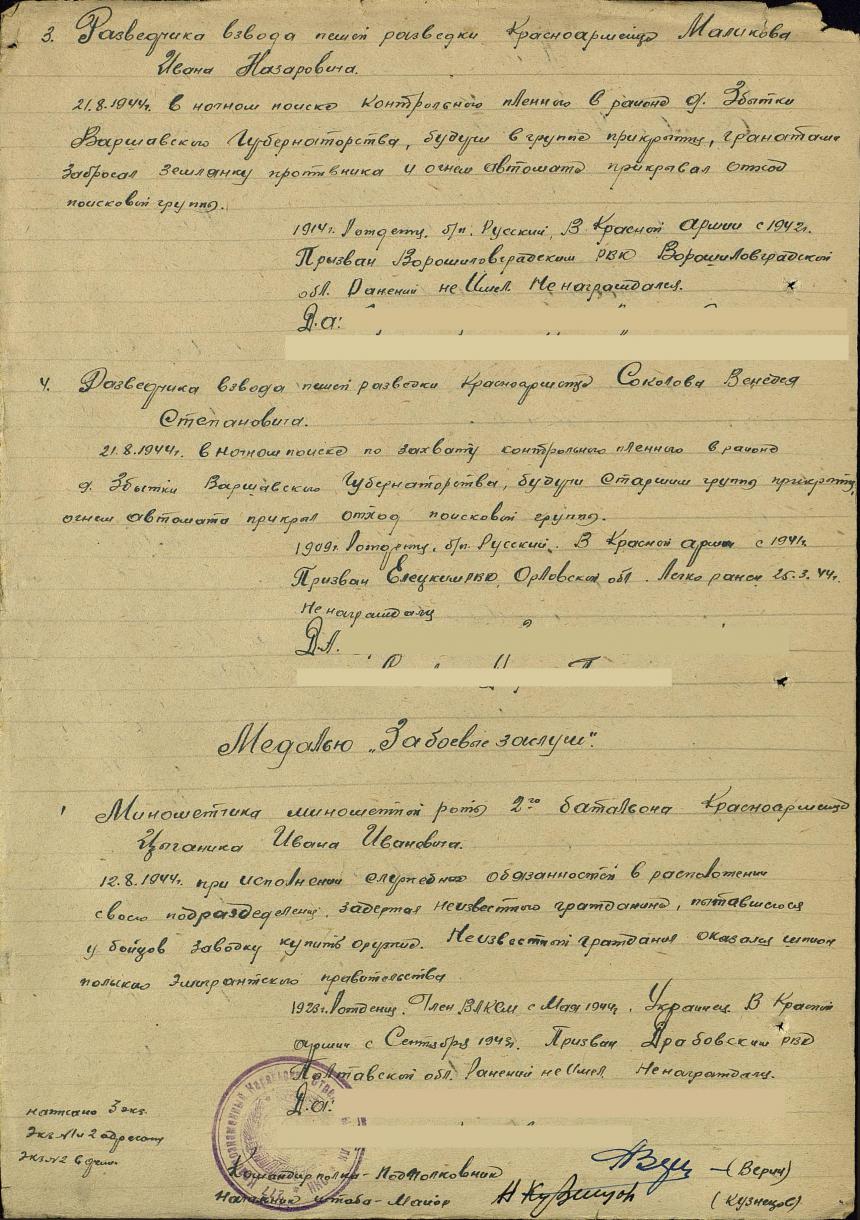 3. Разведчика взвода пешей разведки Красноармейца Маликова
Ивана Назаровича.
21.8.1944г. в ночном поиске контрольного пленного в районе д. Збытки
Варшавского Губернаторства, будучи в группе прикрытия, гранатами
забросал землянку противника и огнем автомата прикрывал отход
поисковой группы.
1914г. Рождения, б/п. Русский, В Красной армии с 1942г.
Призван Ворошиловградским РВК Ворошиловградской
обл. Ранений не Имел. Не награждался.
Д.а:
4. Разведчика взвода пешей разведки Красноармейца Соколова
Степановича.
21.8.1944г. в ночном поиске по захвату контрольного пленного в районе
д. Збытки Варшавского Губернаторства, будучи Старшим группы прикрытия,
огнем автомата прикрыл отход поисковой группы.
1909г. Рождения, б/п. Русский. В Красной армии с 1941г.
Призван Елецким РВК, Орловской обл. Легко ранен 25.3.44г.
Не награждался
Д.А.
Медалью „За боевые заслуги".
1 Минометчика минометной роты 2го батальона Красноармейца
Цыганика Ивана Ивановича.
12.8.1944г. при исполнении служебных обязанностей в расположении
своего подразделения, задержал неизвестного гражданина, пытавшегося
у бойцов заводку купить оружие. Неизвестный гражданин оказался шпион
польского эмигрантского правительства
1923г. Рождения. Член ВЛКСМ с Мая 1944г., Украинец. В Красной
армии с Сентября 1943г. Призван Драбовским РВК
Полтавской обл. Ранений не Имел. Не награждался.
Д.а:
написано 3 экз.
Экз. №1 и 2 адресату
Экз. №2 в дело
Командир полка - Подполковник (Верин)
Начальник штаба - Майор Н Кузнецов (Кузнецов)